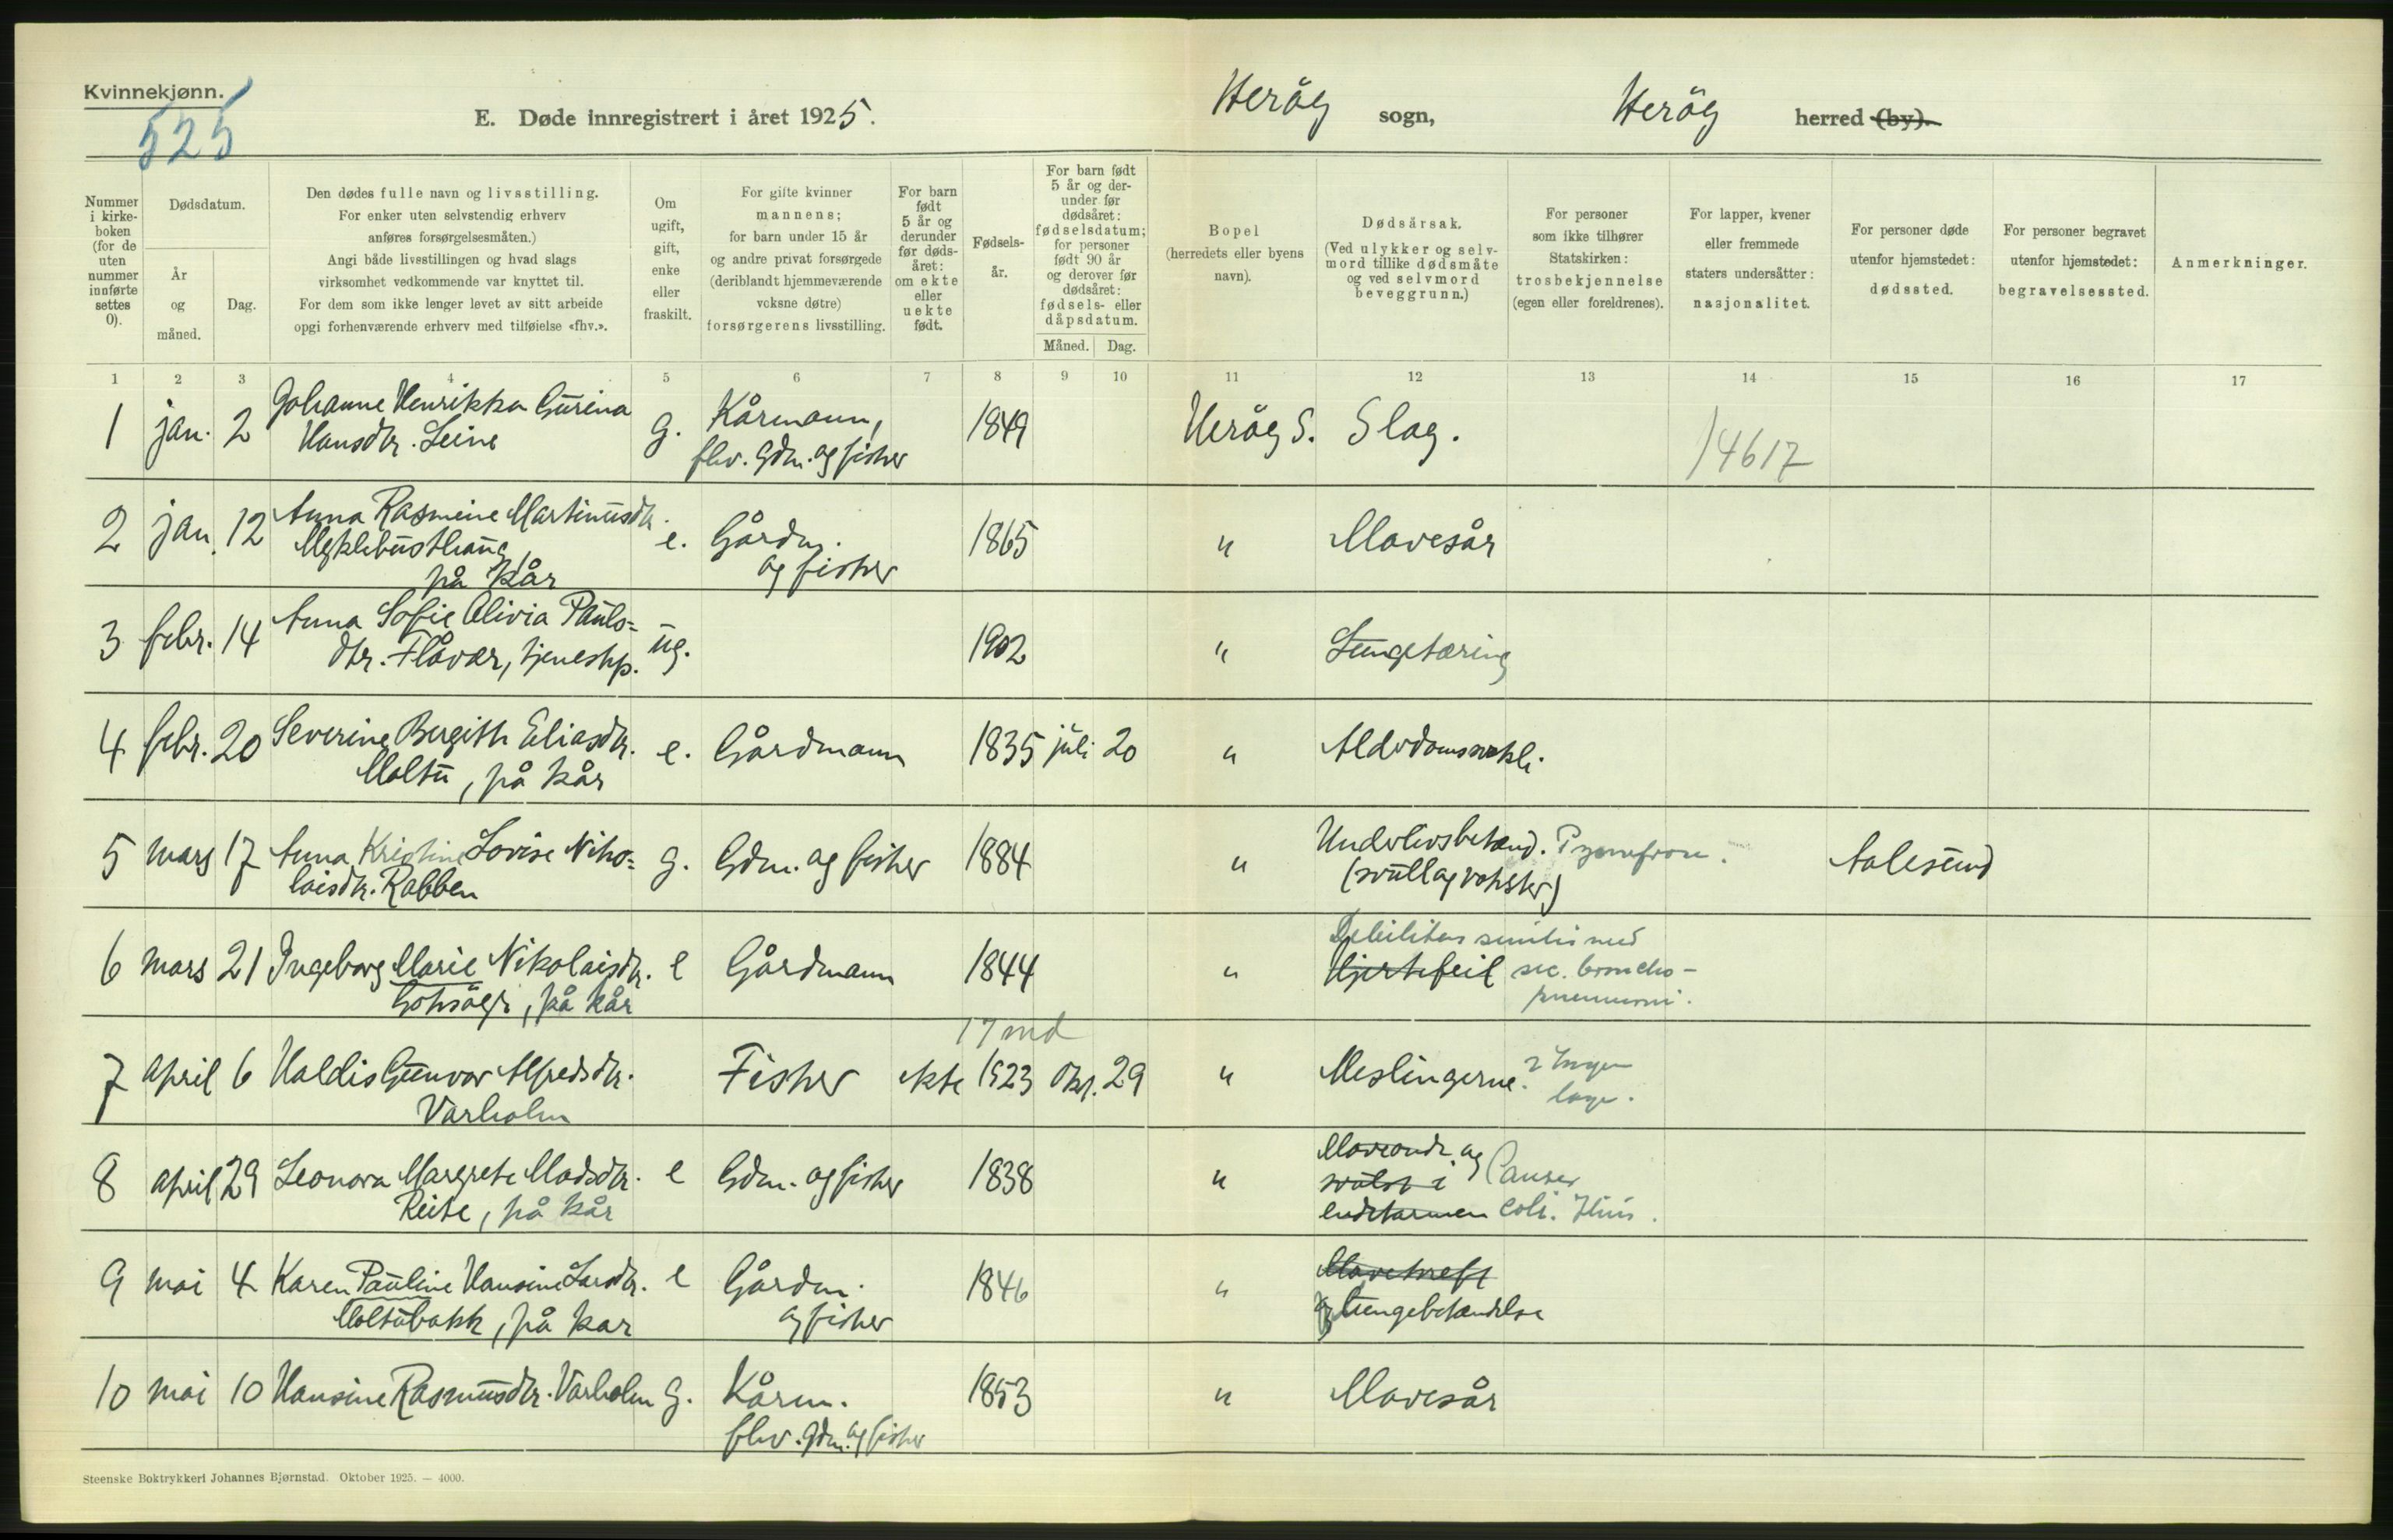 Kvinnekjønn.
525
E. Døde innregistrert i året 1925.
Herøy sogn,
Herøy herred (by).
Nummer i kirke-boken (for de uten nummer innførte settes 0).
Dødsdatum.
År og måned.
Dag.
Den dødes fulle navn og livsstilling.
For enker uten selvstendig erhverv
anføres forsørgelsesmåten.)
Angi både livsstillingen og hvad slags
virksomhet vedkommende var knyttet til.
For dem som ikke lenger levet av sitt arbeide
opgi forhenværende erhverv med tilføielse «fhv.».
Om ugift, gift, enke eller fraskilt.
For gifte kvinner
mannens;
for barn under 15 år
og andre privat forsørgede
(deriblandt hjemmeværende
voksne døtre)
forsørgerens livsstilling.
For barn født 5 år og derunder før døds-året: om ekte eller uekte født.
Fødsels-år.
For barn født 5 år og der-under før dødsåret: fødselsdatum; for personer født 90 år og derover før dødsåret: fødsels- eller dåpsdatum.
Måned. Dag.
Bopel
(herredets eller byens
navn).
Dødsårsak.
(Ved ulykker og selv-
mord tillike dødsmåte
og ved selvmord
beveggrunn.)
For personer
som ikke tilhører
Statskirken:
trosbekjennelse
(egen eller foreldrenes).
For lapper, kvener
eller fremmede
staters undersåtter:
nasjonalitet.
For personer døde
utenfor hjemstedet:
dødssted.
For personer begravet
utenfor hjemstedet:
begravelsessted.
Anmerkninger.
1 2 3 4 5 6 7 8 9 10 11 12 13 14 15 16 17
1 jan. 2 Johanne Henrikka Gurina g. Kårmann, 1849 Herøy S. Slag.
Hansdtr. Leine fhv. Gdm. og fisker 14617
2 jan. 12 Anna Rasmine Martinusdtr. e. Gårdm. 1865 " Mavesår
Myklebusthaug og fisker
på kår
3 febr. 14 Anna Sofie Olivia Pauls= ug. 1902 " Lungetæring
dtr. Flåvær, tjenestp.
4 febr. 20 Severine Bergith Eliasdtr. e. Gårdmann 1835 juli 20 " Alderdomssvakh.
Moltu, på kår
5 mars 17 Anna Kristine Lovise Niko= g. Gdm. og fisker 1884 " Underlivsbetænd. Aalesund
laisdtr. Rabben (svull og vokster)
Debilitas senilis med
6 mars 21 Ingeborg Marie Nikolaisdtr. e Gårdmann 1844 " Hjertefeil sec. broncho-
på kår pneumoni.
17 md
7 april 6 Haldis Gunvor Alfredsdtr. Fisker ekte 1923 okt. 29 " Meslingerne.
Varholm
8 april 29 Leonora Margrete Madsdtr. e Gdm. og fisker 1838 " Maveonde og Cancer
Reite, på kår svulst i
endetarmen coli.
9 mai 4 Karen Pauline Hansine Larsdtr. e Gårdm. 1846 " Mavekreft
Moltubakk, på kår og fisker og lungebetændelse
10 mai 10 Hansine Rasmusdtr. Varholm g. Kårm. 1853 " Mavesår
fhv. gdm. og fisker
Steenske Boktrykkeri Johannes Bjørnstad. Oktober 1925. — 4000.